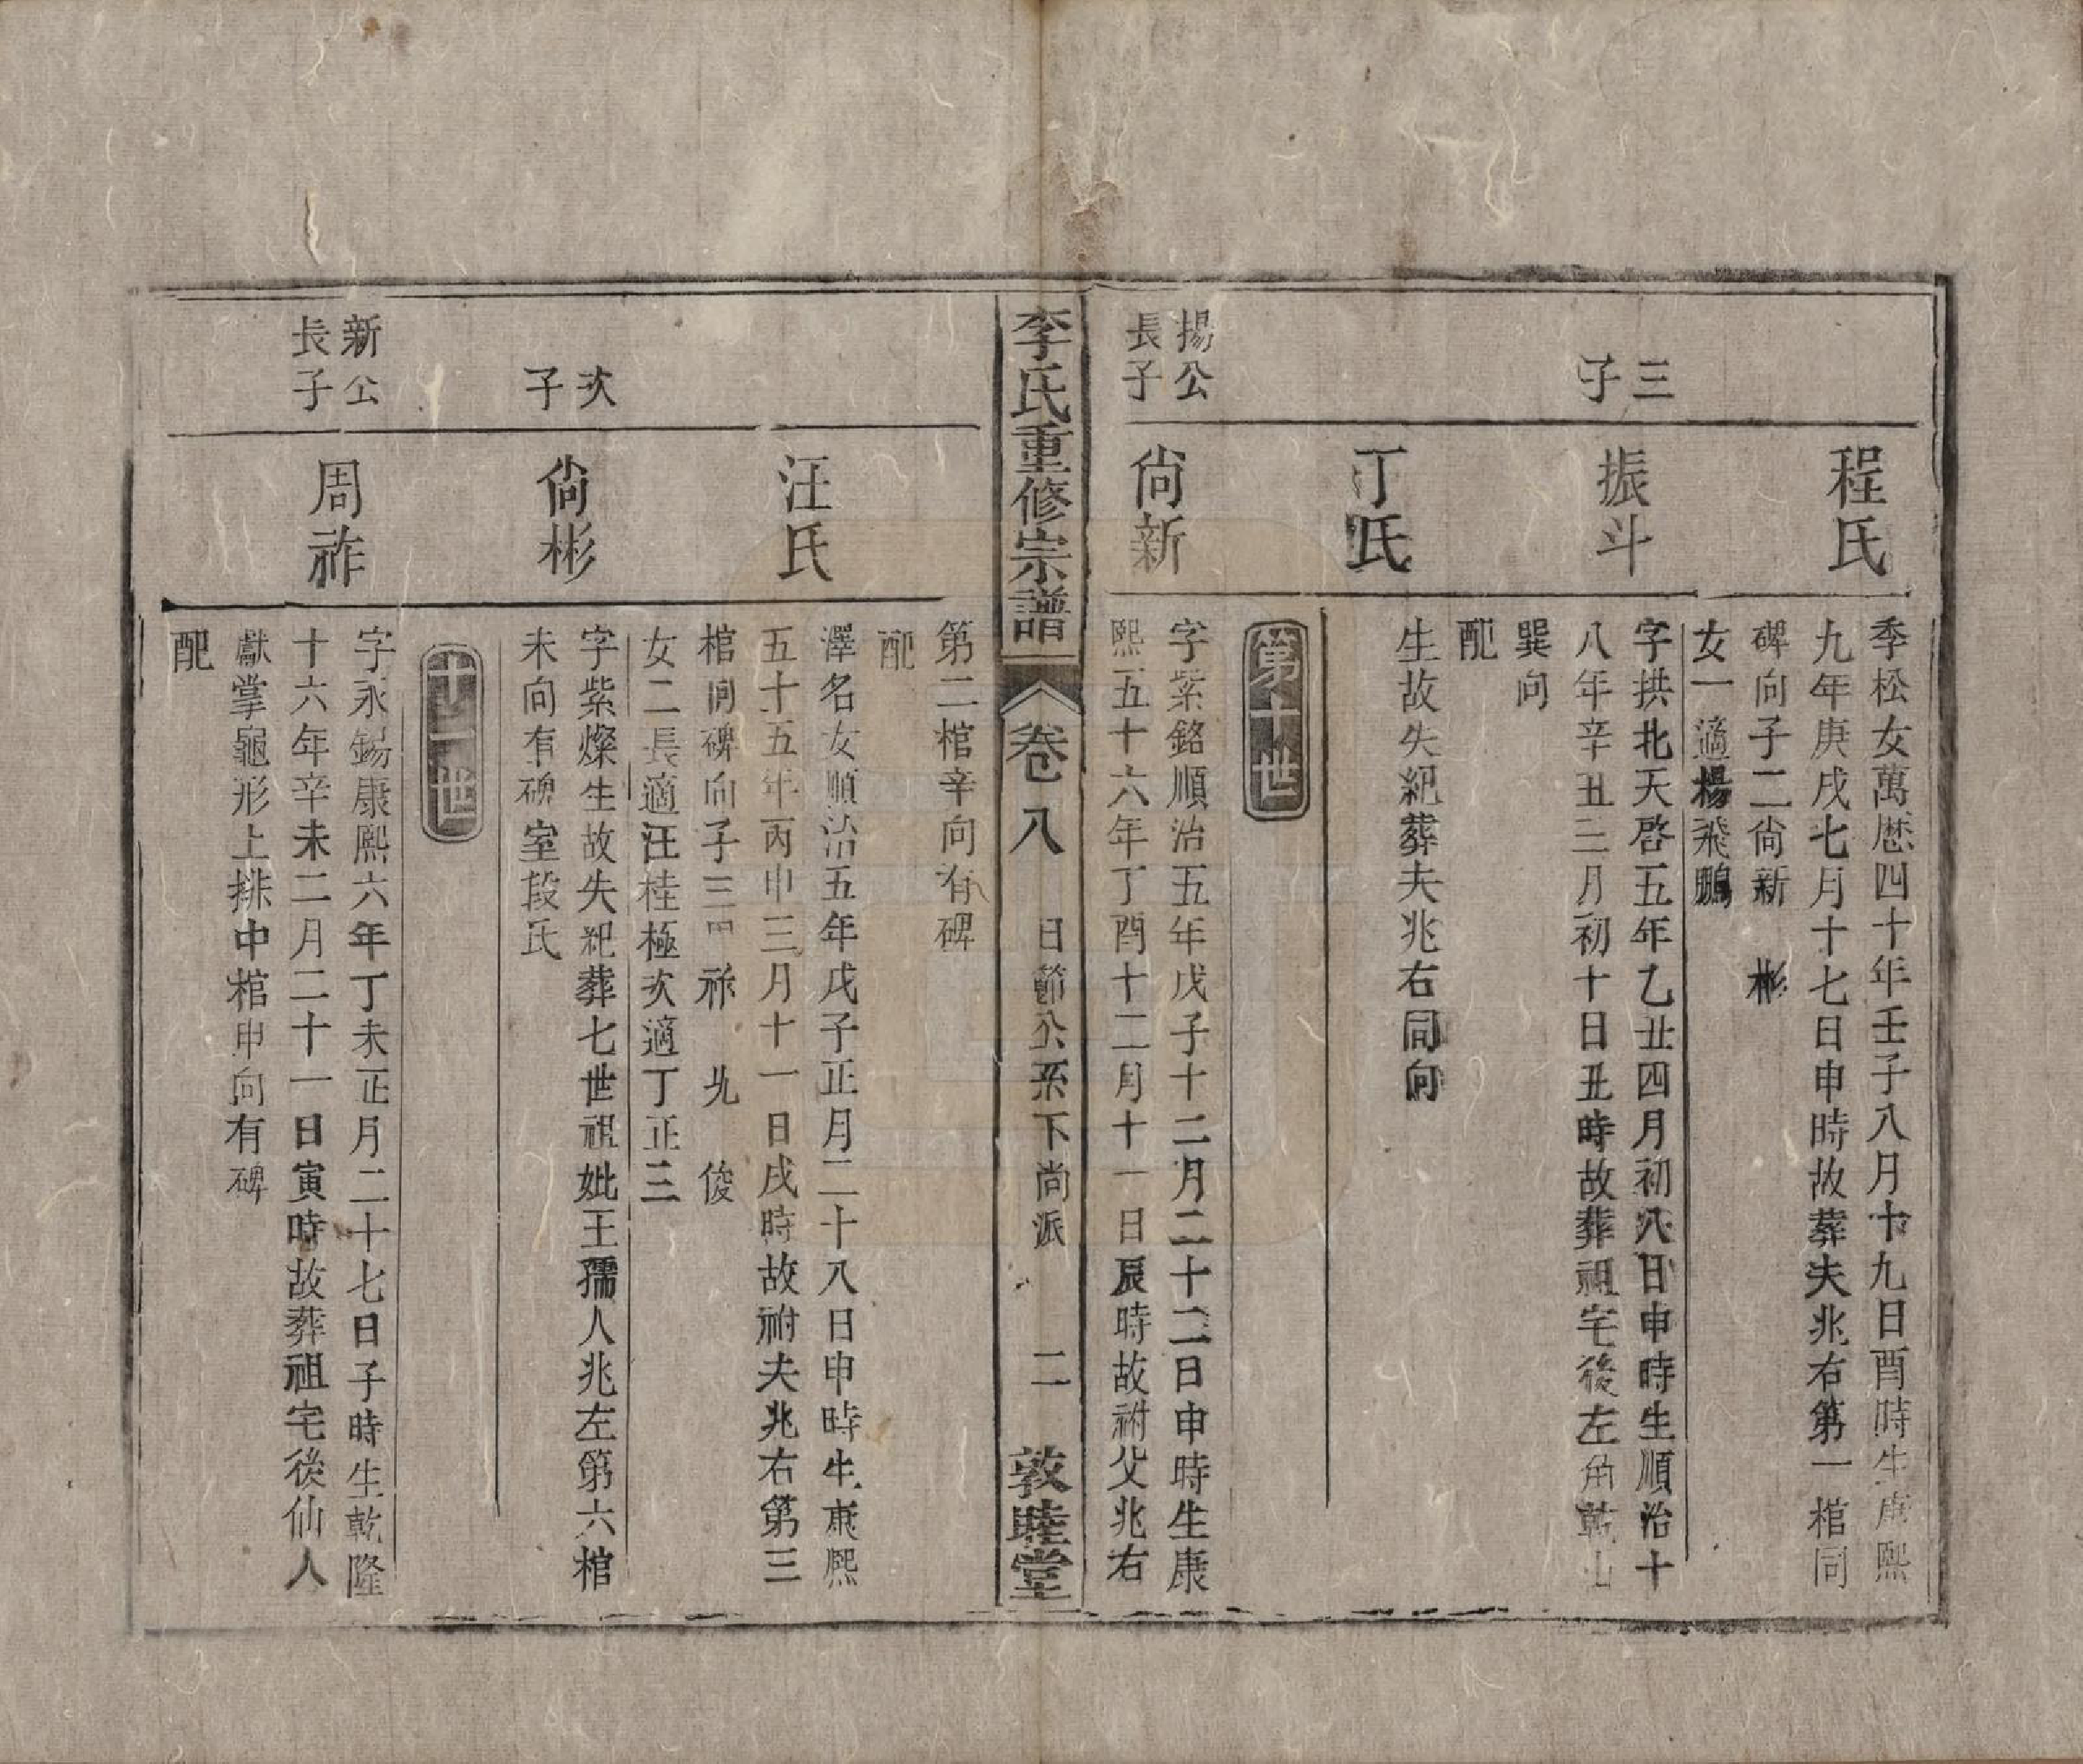 程氏
季松女萬厯四十年壬子八月十九日酉時生康熙
九年庚戌七月十七日申時故葬夫兆右第一棺同
碑向子二尙新　彬
女一適楊飛鵬
三
子
振斗
字拱北天啓五年乙丑四月初八日申時生順治十
八年辛丑三月初十日丑時故葬祖宅後左角乾山
巽向
配
丁氏
生故失紀葬夫兆右同向
第十世
揚公
長子
尙新
字紫銘順治五年戊子十二月二十二日申時生康
熙五十六年丁酉十二月十一日辰時故祔父兆右
李氏重修宗譜
卷八
日節公系下尚派
二
敦睦堂
第二棺辛向有碑
配
汪氏
澤名女順治五年戊子正月二十八日申時生康熙
五十五年丙申三月十一日戌時故祔夫兆右第三
棺同碑向子三周祚　光　俊
女二長適汪桂極次適丁正三
次
子
尙彬
字紫燦生故失祀葬七世祖妣王孺人兆左第六棺
未向有碑室段氏
十一世
新公
長子
周祚
字永錫康熙六年丁未正月二十七日子時生乾隆
十六年辛未二月二十一日寅時故葬祖宅後仙人
獻掌龜形上排中棺申向有碑
配